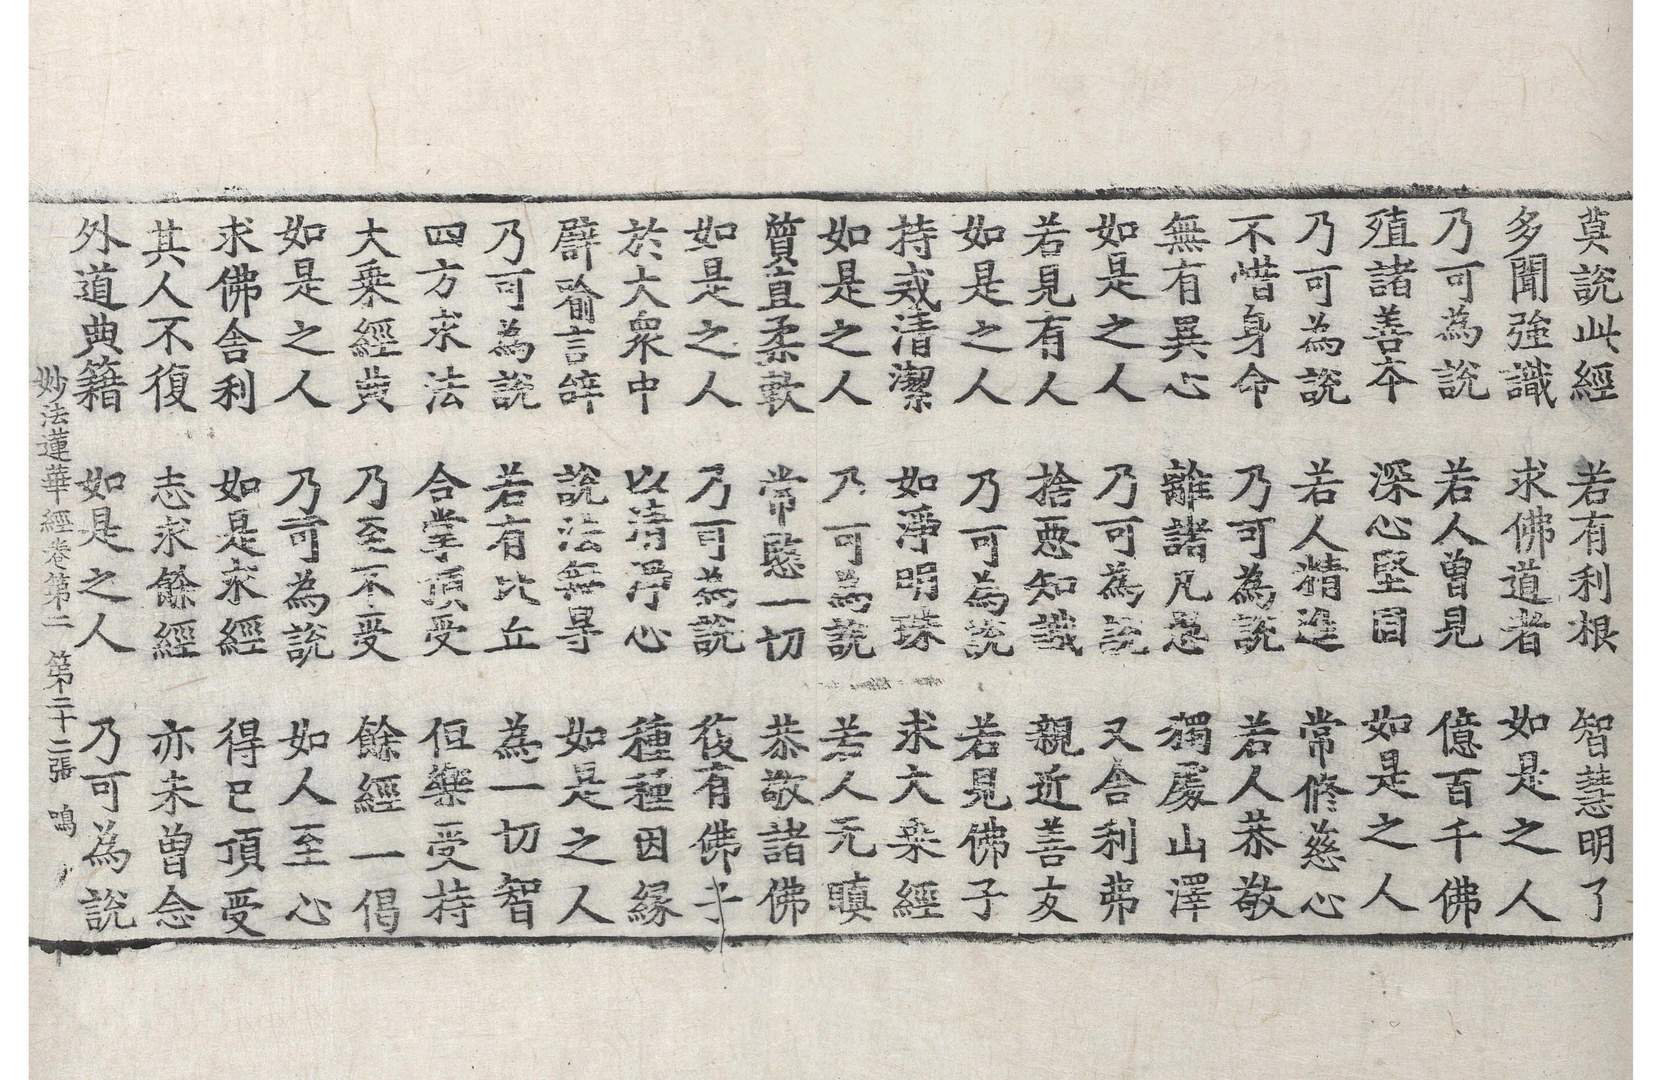 莫說此經　若有利根　智慧明了
多聞強識　求佛道者　如是之人
乃可為說　若人曽見　億百千佛
殖諸善夲　深心堅固　如是之人
乃可為說　若人精進　常修慈心
不惜身命　乃可為說　若人恭敬
無有異心　離諸凡愚　獨處山澤
如是之人　乃可為說　又舎利弗
若見有人　捨惡知識　親近善友
如是之人　乃可為說　若見佛子
持戒清潔　如淨明珠　求大乗經
如是之人　乃可為說　若人无瞋
質直柔軟　常愍一切　恭敬諸佛
如是之人　乃可為說　復有佛子
於大衆中　以清淨心　種種因緣
譬喻言辝　說法無㝵　如是之人
乃可為說　若有比丘　為一切智
四方求法　合掌頂受　但樂受持
大乗經典　乃至不受　餘經一偈
如是之人　乃可為說　如人至心
求佛舎利　如是求經　得已頂受
其人不復　志求餘經　亦未曽念
外道典籍　如是之人　乃可為說
妙法蓮華經卷第二　第三十二張　鳴